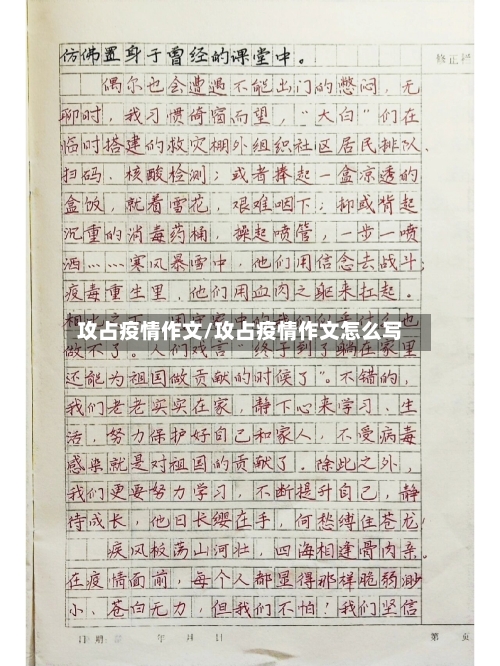 仿佛置身于曾经的课堂中。
修正栏
偶尔也会遭遇不能出门的憋闷，无
聊时，我习惯倚窗而望，“大白”们在
临时搭建的救灾棚外组织社区居民排队、
扫码、核酸检测；或者捧起一盒凉透的
盒饭，就着雪花，艰难咽下；抑或背起
沉重的消毒药桶，操起喷管，一步一喷
洒……寒风暴雪中，他们用信念去战斗；
疫毒重生里，他们用血肉之躯来扛起。
攻占疫情作文/攻占疫情作文怎么写
做不了。人们戏言“终于到了躺在家里
还能为祖国做贡献的时候了”。不错的，
我们老老实实在家，静下心来学习、生
活，努力保护好自己和家人，不受病毒
感染就是对祖国的贡献了。除此之外，
我们更要努力学习，不断提升自己，静
待成长，他日长缨在手，何愁缚住苍龙！
疾风板荡山河壮，四海相逢骨肉亲。
在疫情面前，每个人都显得那样脆弱渺
小、苍白无力，但我们不怕！我们坚信
日期 年 月 日 第 页